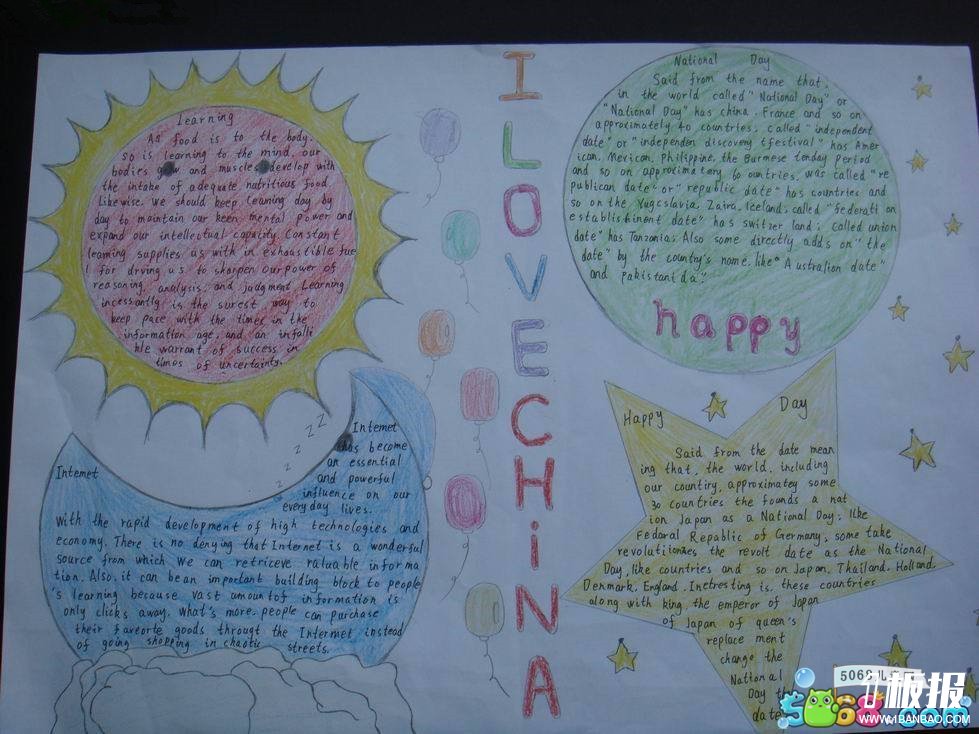 Learning
As food is to the body.
so is learning to the mind. our
bodies grow and muscles develop with
the intake of adequate nutritious food.
Likewise. we should keep leaning day by
day to maintain our keen mental power and
expand our intellectual capacity. Constant
learning supplies us with in exhaustible fue
l for drving us to sharpen our power of
reasoning, analysis. and judgment. Learning
incessantly is the surest way to
keep pace with the times in the
information age, and an infalli
ble warrant of success in
times of uncertainty.
Internet
Internet
has become
an essential
and powerful
influence on our
every day lives.
With the rapid development of high technologies and
economy. There is no denying that Internet is a wonderful
source from which We can retriceve raluable informa
tion. Also. it can be an important building block to people
's learning because vast amountof information is
only clicks away. What's more. people can purchase
their faveorte goods througt the Internet instead
of going shopping in chaotic streets.
z z z z
I LOVE CHiNA
National Day
Said from the name that.
in the world called "National Day" or
"National Day" has china. France and so on
approximately 40 countries. called "independent
date" or "independen discovery tfestival" has Amer
ican. Mexican. Philippine. the Burmese tenday period
and so on approximatory 60 ountries. was called "re
publican date" or "republic date" has countries and
so on the Yugcslavia. Zaira. Iceland. called "federati on
establishment date" has switzer land: called union
date" has Tanzania: Also some directly adds on "the
date" by the country's name. like "A ustralian date"
and pakistant da".
happy
Happy Day
Said from the date mean
ing that, the world, including
our countiry, approximatey some
30 countries the founds a nat
ion Japan as a National Day; like
Fedaral Republic of Germany, some take
revolutionaes the revolt date as the National
Day, like countries and so on Japan, Thailand. Holland.
Denmark. England. Inctresting is, these countries
along with king, the emperor of Japan
of Japan of queen's
replace ment
change the
National
Day the
date
5068儿
板报
5068.com
WWW.1BANBAO.COM